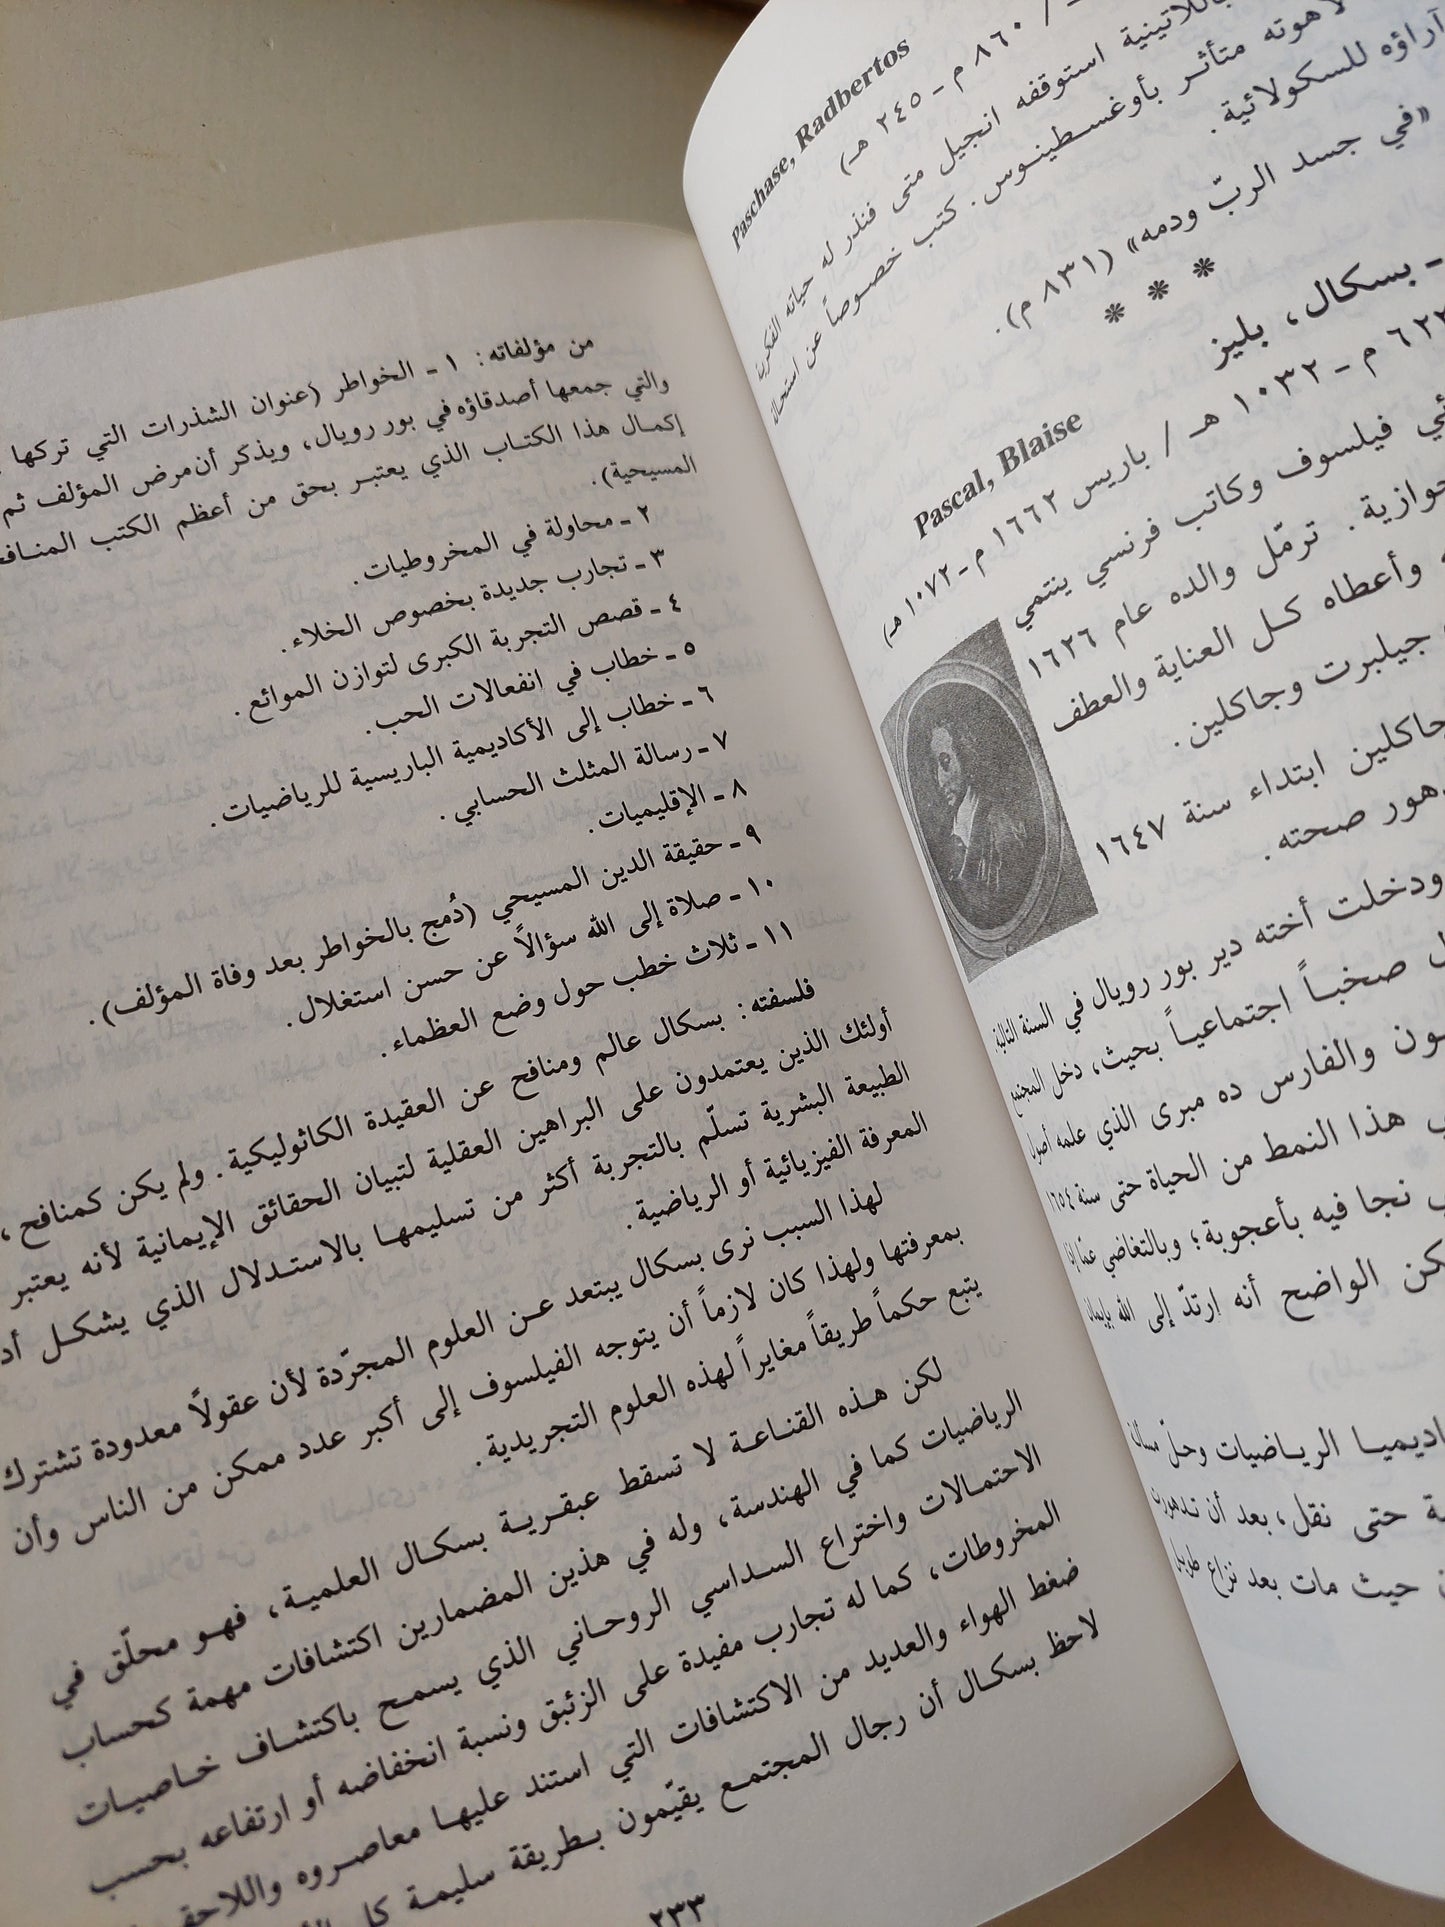 Paschase, Radbertos
٨٦٠ م - ٢٤٥ هـ)
باللاتينية استوقفه انجيل متى فنذر له حياته الفكرية
لاهوته متأثر بأوغسطينوس. كتب خصوصاً عن استحالة
آراؤه للسكولائية.
«في جسد الربّ ودمه» (٨٣١ م).
* * *
- بسكال، بليز
Pascal, Blaise
م - ١٠٣٢ هـ / باريس ١٦٦٢ م - ١٠٧٢ هـ)
فيلسوف وكاتب فرنسي ينتمي
ترمّل والده عام ١٦٢٦
وأعطاه كل العناية والعطف
جيلبرت وجاكلين.
جاكلين ابتداء سنة ١٦٤٧
صحته.
ودخلت أخته دير بور رويال في السنة التالية.
صخباً اجتماعياً بحيث، دخل المجتمع
والفارس ده ميرى الذي علمه أصول
هذا النمط من الحياة حتى سنة ١٦٥٤
نجا فيه بأعجوبة؛ وبالتغاضي عمّا إذا
الواضح أنه ارتدّ إلى الله بإيمان
الرياضيات وحلّ مسائل
حتى نقل، بعد أن تدهورت
حيث مات بعد نزاع طويل
من مؤلفاته: ١ - الخواطر (عنوان الشذرات التي تركها
والتي جمعها أصدقاؤه في بور رويال، ويذكر أن مرض المؤلف ثم
إكمال هذا الكتاب الذي يعتبر بحق من أعظم الكتب
المسيحية).
٢ - محاولة في المخروطيات.
٣ - تجارب جديدة بخصوص الخلاء.
٤ - قصص التجربة الكبرى لتوازن الموائع.
٥ - خطاب في انفعالات الحب.
٦ - خطاب إلى الأكاديمية الباريسية للرياضيات.
٧ - رسالة المثلث الحسابي.
٨ - الإقليميات.
٩ - حقيقة الدين المسيحي (دُمج بالخواطر بعد وفاة المؤلف).
١٠ - صلاة إلى الله سؤالاً عن حسن استغلال.
١١ - ثلاث خطب حول وضع العظماء.
فلسفته: بسكال عالم ومنافح عن العقيدة الكاثوليكية. ولم يكن كمنافح،
أولئك الذين يعتمدون على البراهين العقلية لتبيان الحقائق الإيمانية لأنه يعتبر
الطبيعة البشرية تسلّم بالتجربة أكثر من تسليمها بالاستدلال الذي يشكل
المعرفة الفيزيائية أو الرياضية.
لهذا السبب نرى بسكال يبتعد عن العلوم المجرّدة لأن عقولاً معدودة تشترك
بمعرفتها ولهذا كان لازماً أن يتوجه الفيلسوف إلى أكبر عدد ممكن من الناس وأن
يتبع حكماً طريقاً مغايراً لهذه العلوم التجريدية.
لكن هذه القناعة لا تسقط عبقرية بسكال العلمية، فهو محلّق في
الرياضيات كما في الهندسة، وله في هذين المضمارين اكتشافات مهمة كحساب
الاحتمالات واختراع السداسي الروحاني الذي يسمح باكتشاف خاصيات
المخروطات، كما له تجارب مفيدة على الزئبق ونسبة انخفاضه أو ارتفاعه بحسب
ضغط الهواء والعديد من الاكتشافات التي استند عليها معاصروه
لاحظ بسكال أن رجال المجتمع يقيّمون بطريقة سليمة
٢٣٣